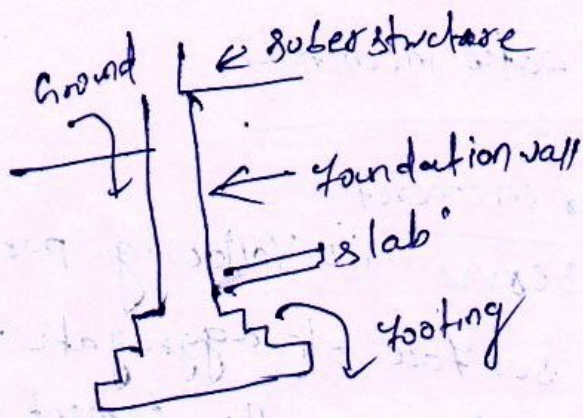 Ground
suberstructare
foundation wall
slab
footing